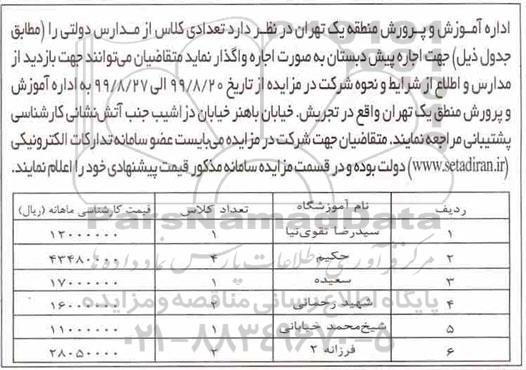 اداره آموزش و پرورش منطقه یک تهران در نظر دارد تعدادی کلاس از مدارس دولتی را (مطابق
جدول ذیل) جهت اجاره پیش دبستان به صورت اجاره واگذار نماید متقاضیان می‌توانند جهت بازدید از
مدارس و اطلاع از شرایط و نحوه شرکت در مزایده از تاریخ ۹۹/۸/۲۰ الی ۹۹/۸/۲۷ به اداره آموزش
و پرورش منطق یک تهران واقع در تجریش. خیابان باهنر خیابان دزاشیب جنب آتش‌نشانی کارشناسی
پشتیبانی مراجعه نمایند. متقاضیان جهت شرکت در مزایده می‌بایست عضو سامانه تدارکات الکترونیکی
(www.setadiran.ir) دولت بوده و در قسمت مزایده سامانه مذکور قیمت پیشنهادی خود را اعلام نمایند.
ردیف نام آموزشگاه تعداد کلاس قیمت کارشناسی ماهانه (ریال)
۱ سیدرضا تقوی‌نیا ۱ ۱۲۰۰۰۰۰۰
۲ حکیم ۴ ۴۳۴۸۰۰۰۰
۳ سعیده ۱ ۱۷۰۰۰۰۰۰
۴ شهید رحمانی ۲ ۱۶۰۰۰۰۰۰
۵ شیخ‌محمد خیابانی ۱ ۱۱۰۰۰۰۰۰
۶ فرزانه ۲ ۲ ۲۸۰۵۰۰۰۰
ParsNamadData
مرکز فرآوری اطلاعات پارس نماد داده‌ها
پایگاه اطلاع رسانی مناقصه و مزایده
۰۲۱-۸۸۳۴۹۶۷۰-۵